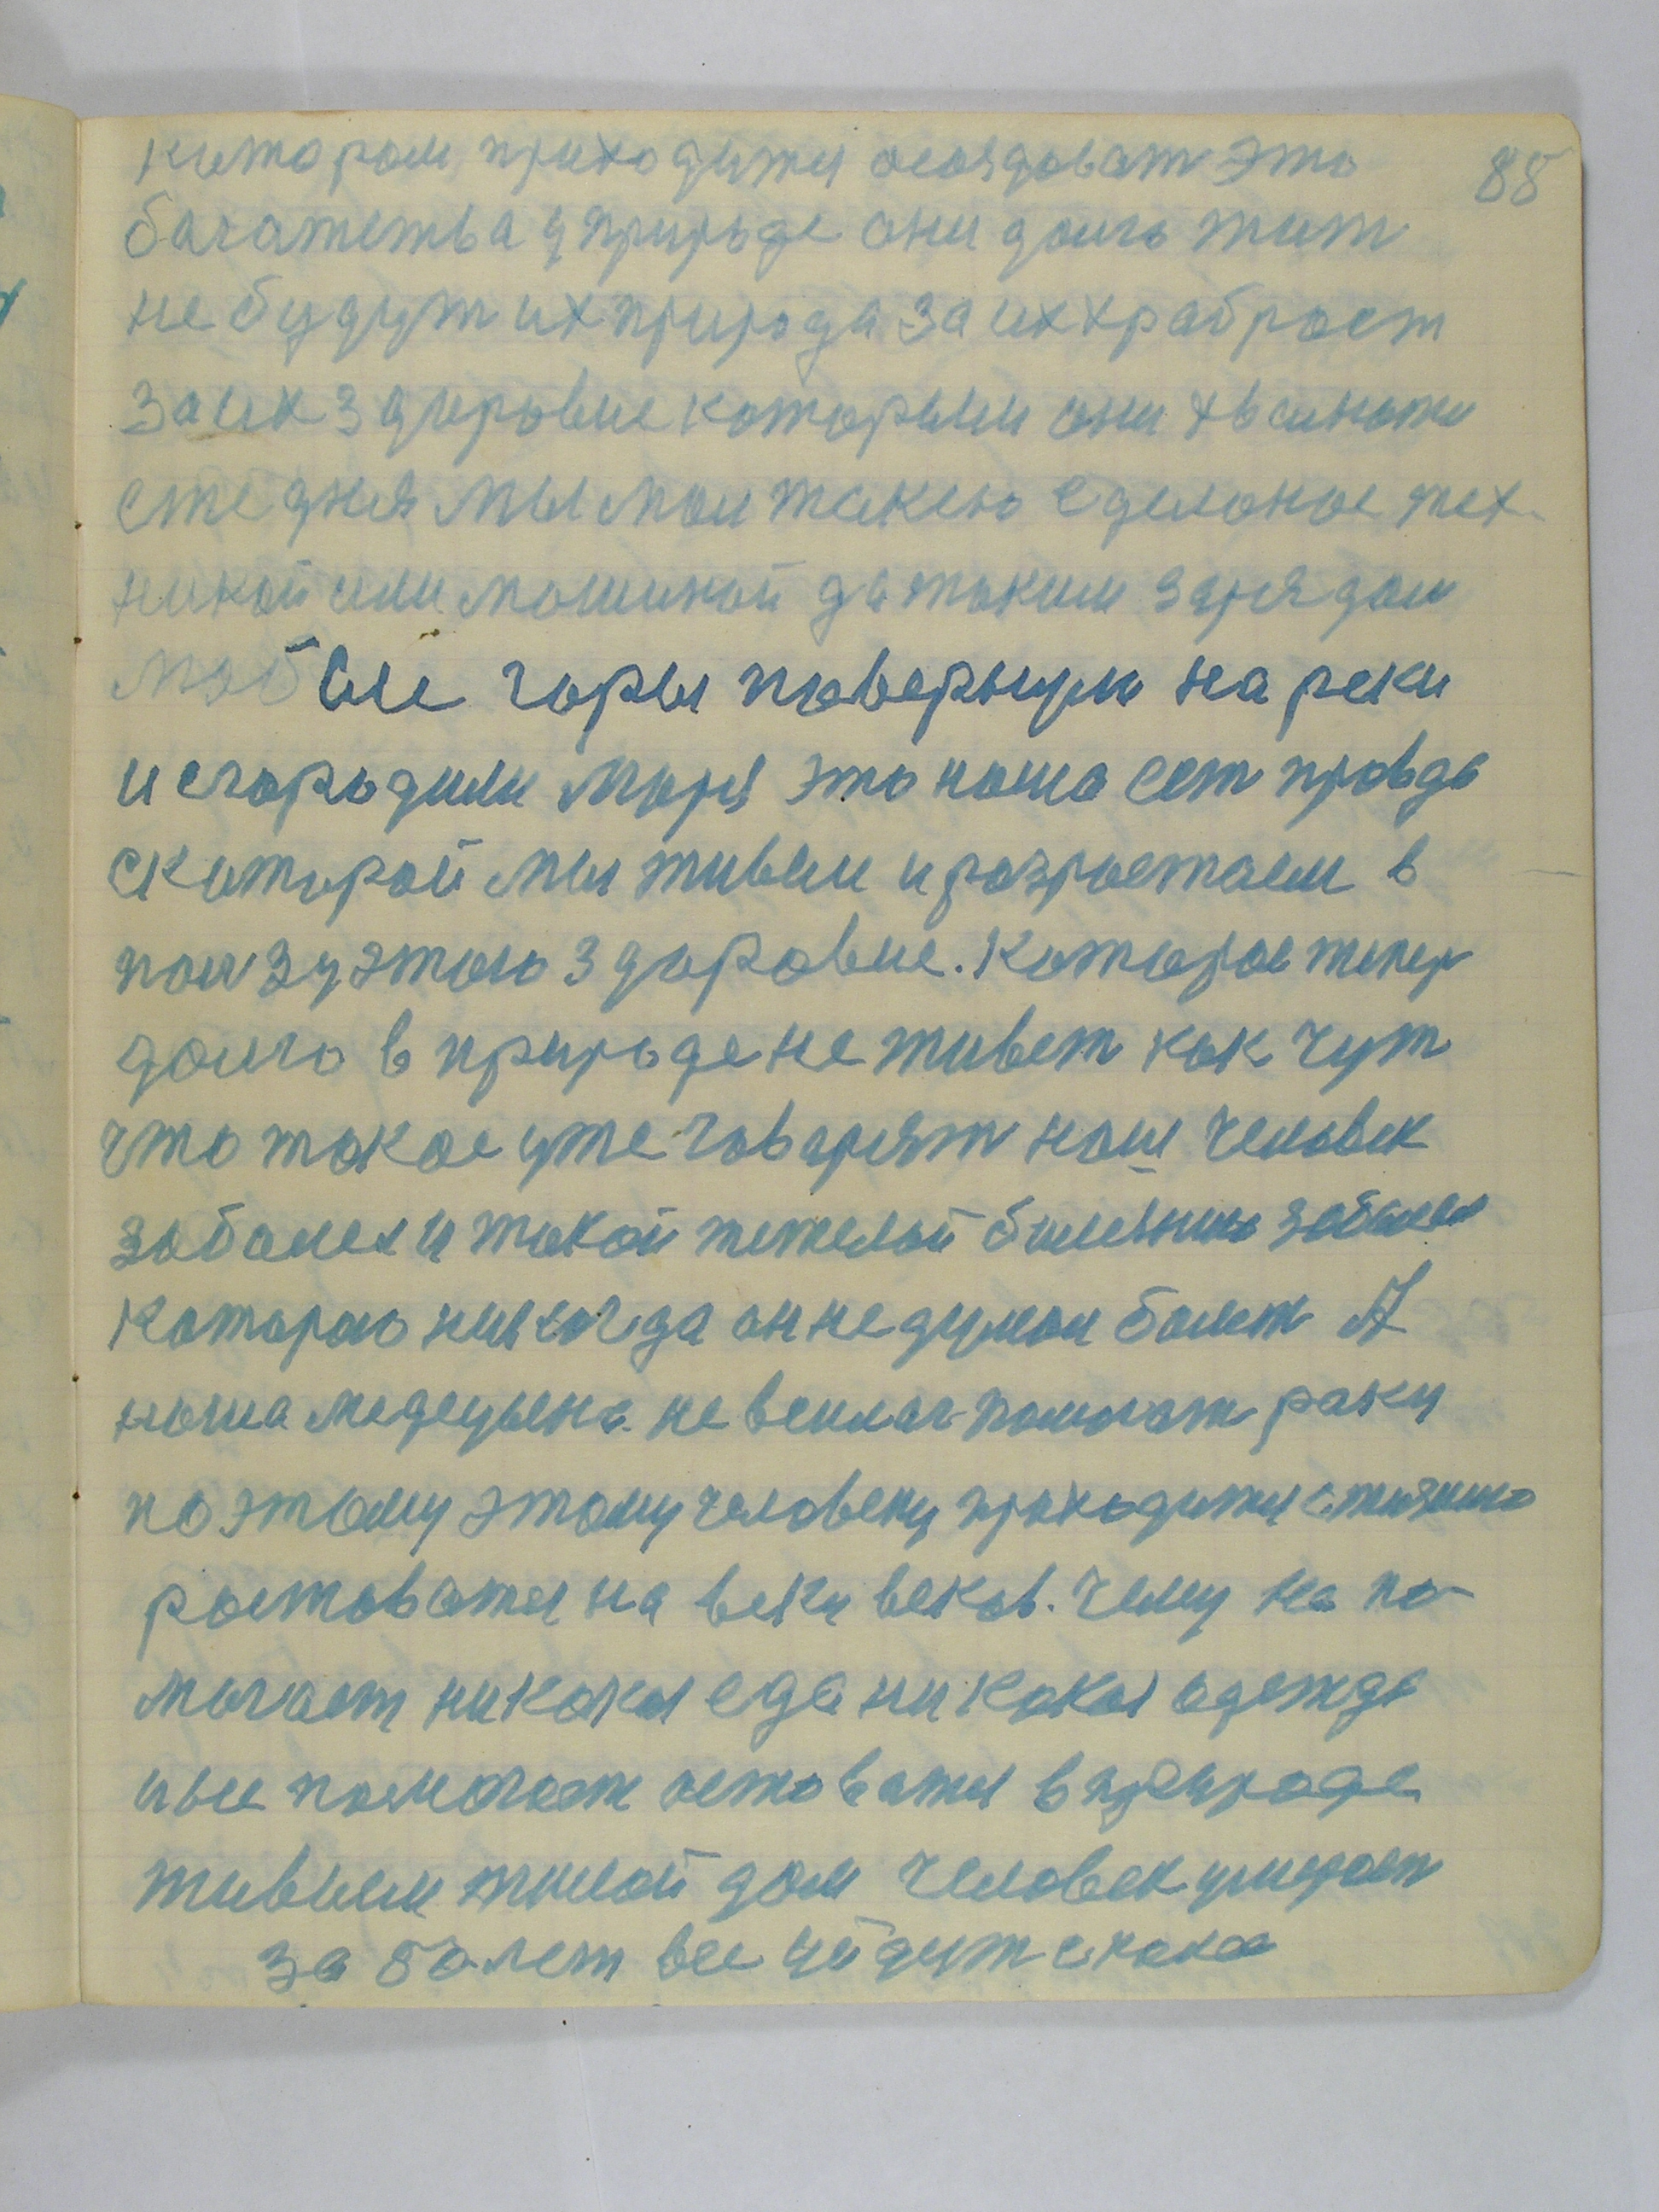 88
котором приходится оследоват это
багатства у природе они долго жит
не будут их природа за их храброст
за их здоровие которыми они хвалюти
сте дния мы мол такею сделоное тех-
никой или мошиной да таким зарядом
моб Все горы повернули на реки
и сгородили моря это ноша ест провда
скоторой мы живем и розростаем в
ползу этого здоровие. Которое тепер
долго в природе не живет как чут
что токое уже говорят нош человек
заболел и такой тежелой болезню заболел
Которою никогда он не думал болет А
ноша медецына не всилах помогат раку
поэтому этому человеку приходится с жизню
ростоватся на веки веков. Чему не по-
могает никокая еда ни кокая одежда
и не помогает остоватся в природе
живым жилой дом человек умирает
за 50 лет все уйдут с кокоо